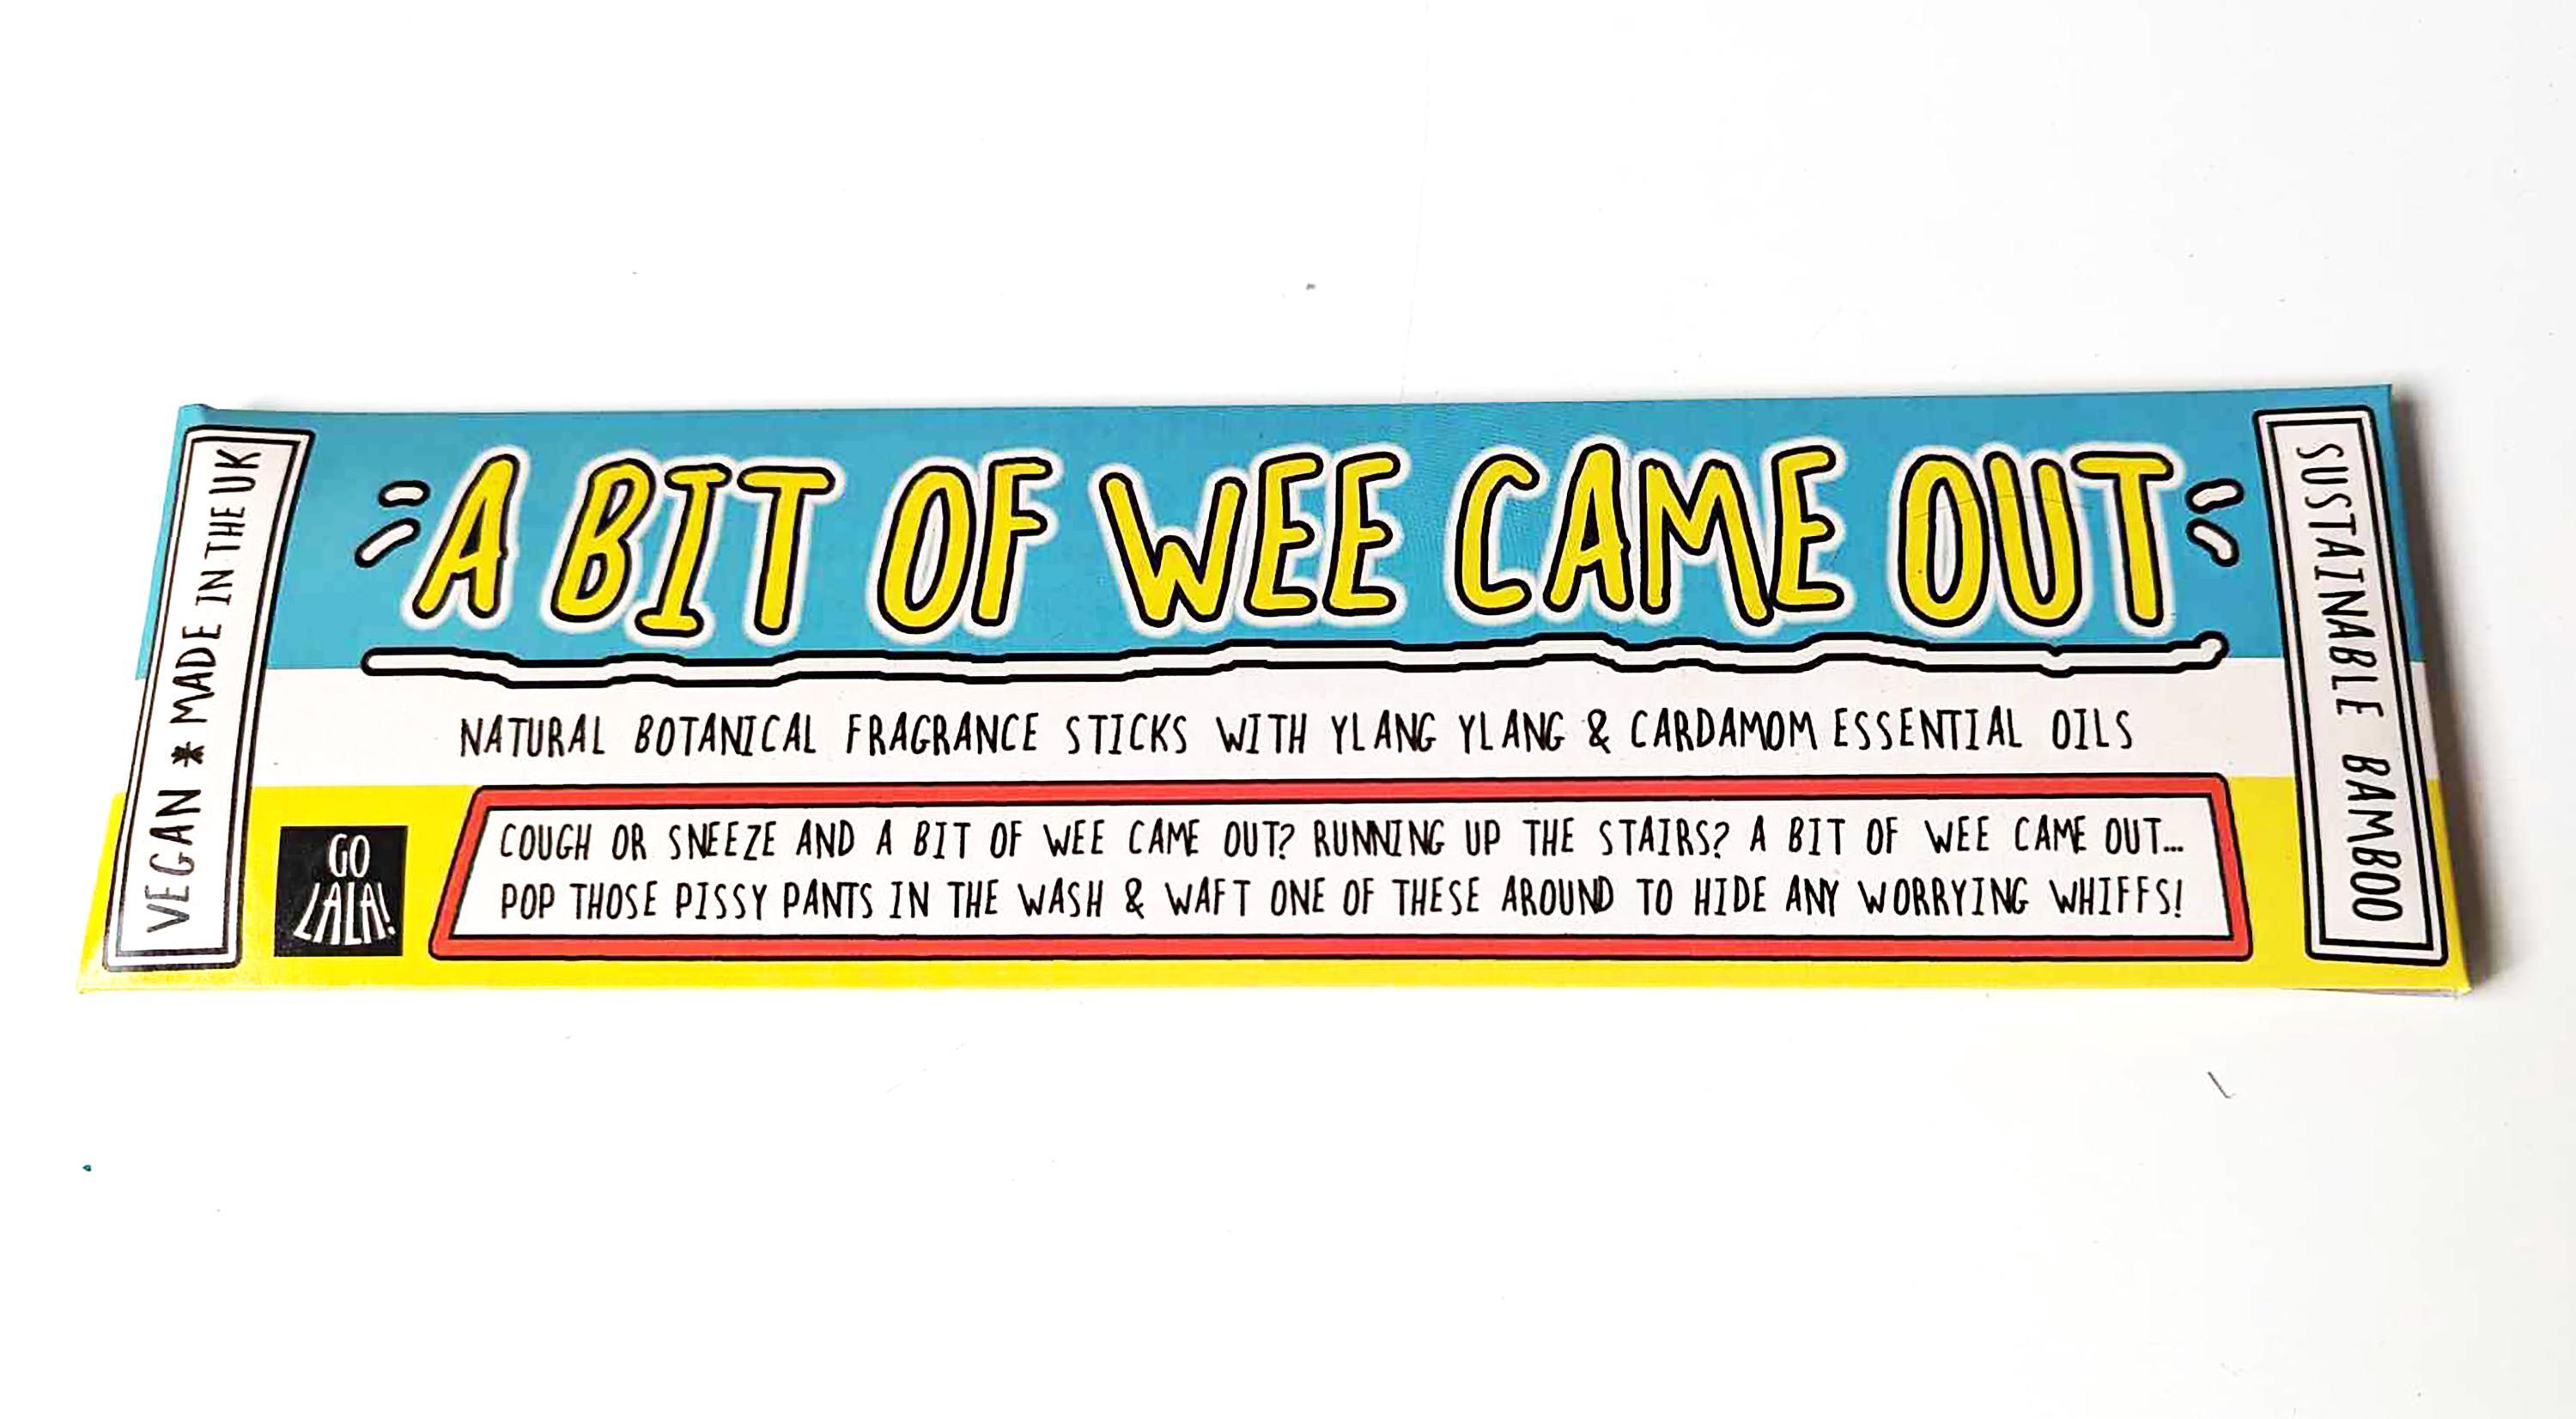 VEGAN * MADE IN THE UK
A BIT OF WEE CAME OUT
NATURAL BOTANICAL FRAGRANCE STICKS WITH YLANG YLANG & CARDAMOM ESSENTIAL OILS
GO
LALA!
COUGH OR SNEEZE AND A BIT OF WEE CAME OUT? RUNNING UP THE STAIRS? A BIT OF WEE CAME OUT...
POP THOSE PISSY PANTS IN THE WASH & WAFT ONE OF THESE AROUND TO HIDE ANY WORRYING WHIFFS!
SUSTAINABLE BAMBOO